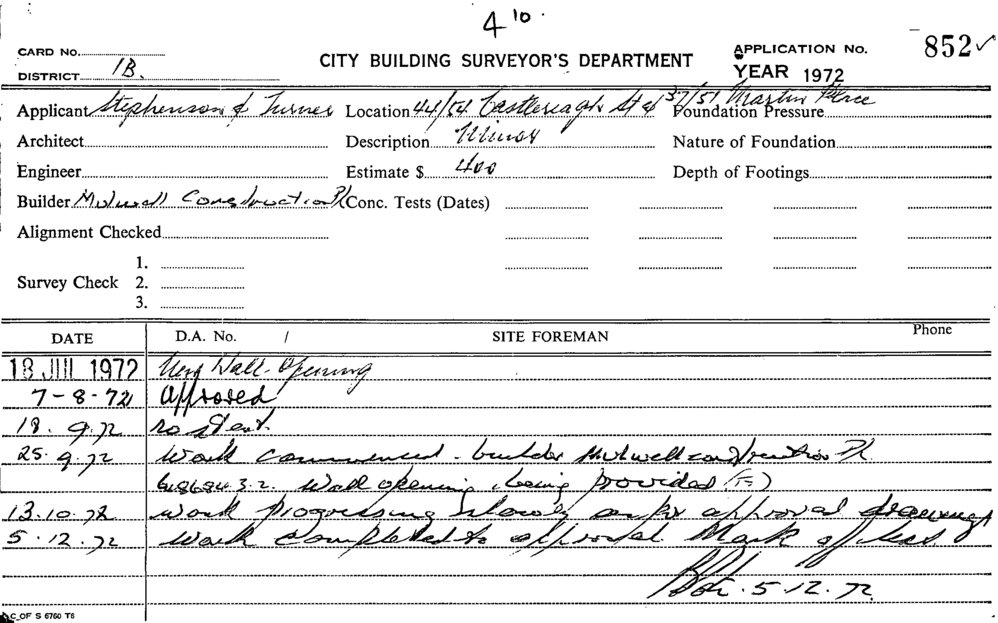 4 10.
CARD No.
DISTRICT 1B.
CITY BUILDING SURVEYOR'S DEPARTMENT
APPLICATION No. 852 ✓
YEAR 1972
Applicant Stephenson & Turner Location 44/54 Castlereagh St & 37/51 Martin Place Foundation Pressure
Architect Description Minor Nature of Foundation
Engineer Estimate $ 400 Depth of Footings
Builder Mulwell Construction P/L Conc. Tests (Dates)
Alignment Checked
Survey Check
1.
2.
3.
DATE D.A. No. / SITE FOREMAN Phone
18 JUL 1972 New Wall Opening
7-8-72 Approved
18. 9.72 no start.
25. 9.72 Work commenced - builder Mulwell Construction P/L
Wall opening being provided
13.10.72 work progressing slowly as per approval drawings
5.12.72 Work completed to approval Mark off
5.12.72.
C. OF S 6760 T8